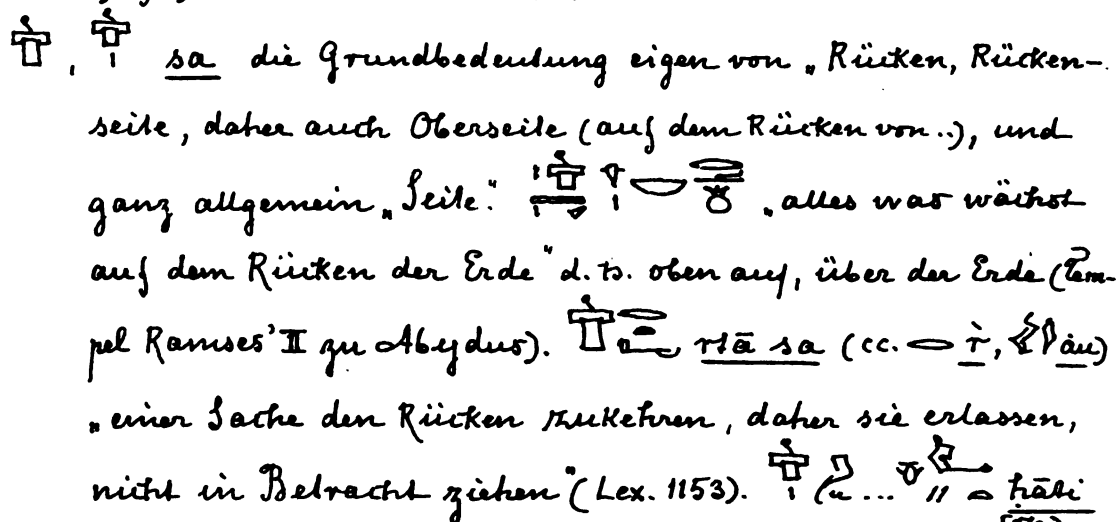 , sa die Grundbedeutung eigen von „Rücken, Rücken-
seite, daher auch Oberseite (auf dem Rücken von..), und
ganz allgemein „Seite“. „alles was wächst
auf dem Rücken der Erde“ d. h. oben auf, über der Erde (Tem-
pel Ramses' II zu Abydus). rtā sa (cc. ṙ, àu)
„einer Sache den Rücken zukehren, daher sie erlassen,
nicht in Betracht ziehen“ (Lex. 1153). ...